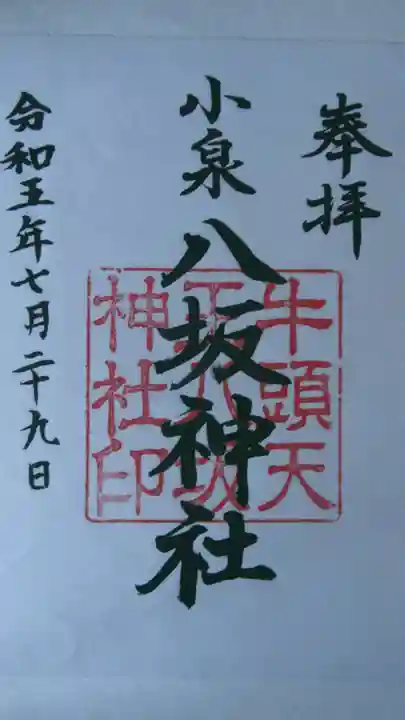 奉拝
小泉
八坂神社
牛頭天
王八坂
神社印
令和五年七月二十九日